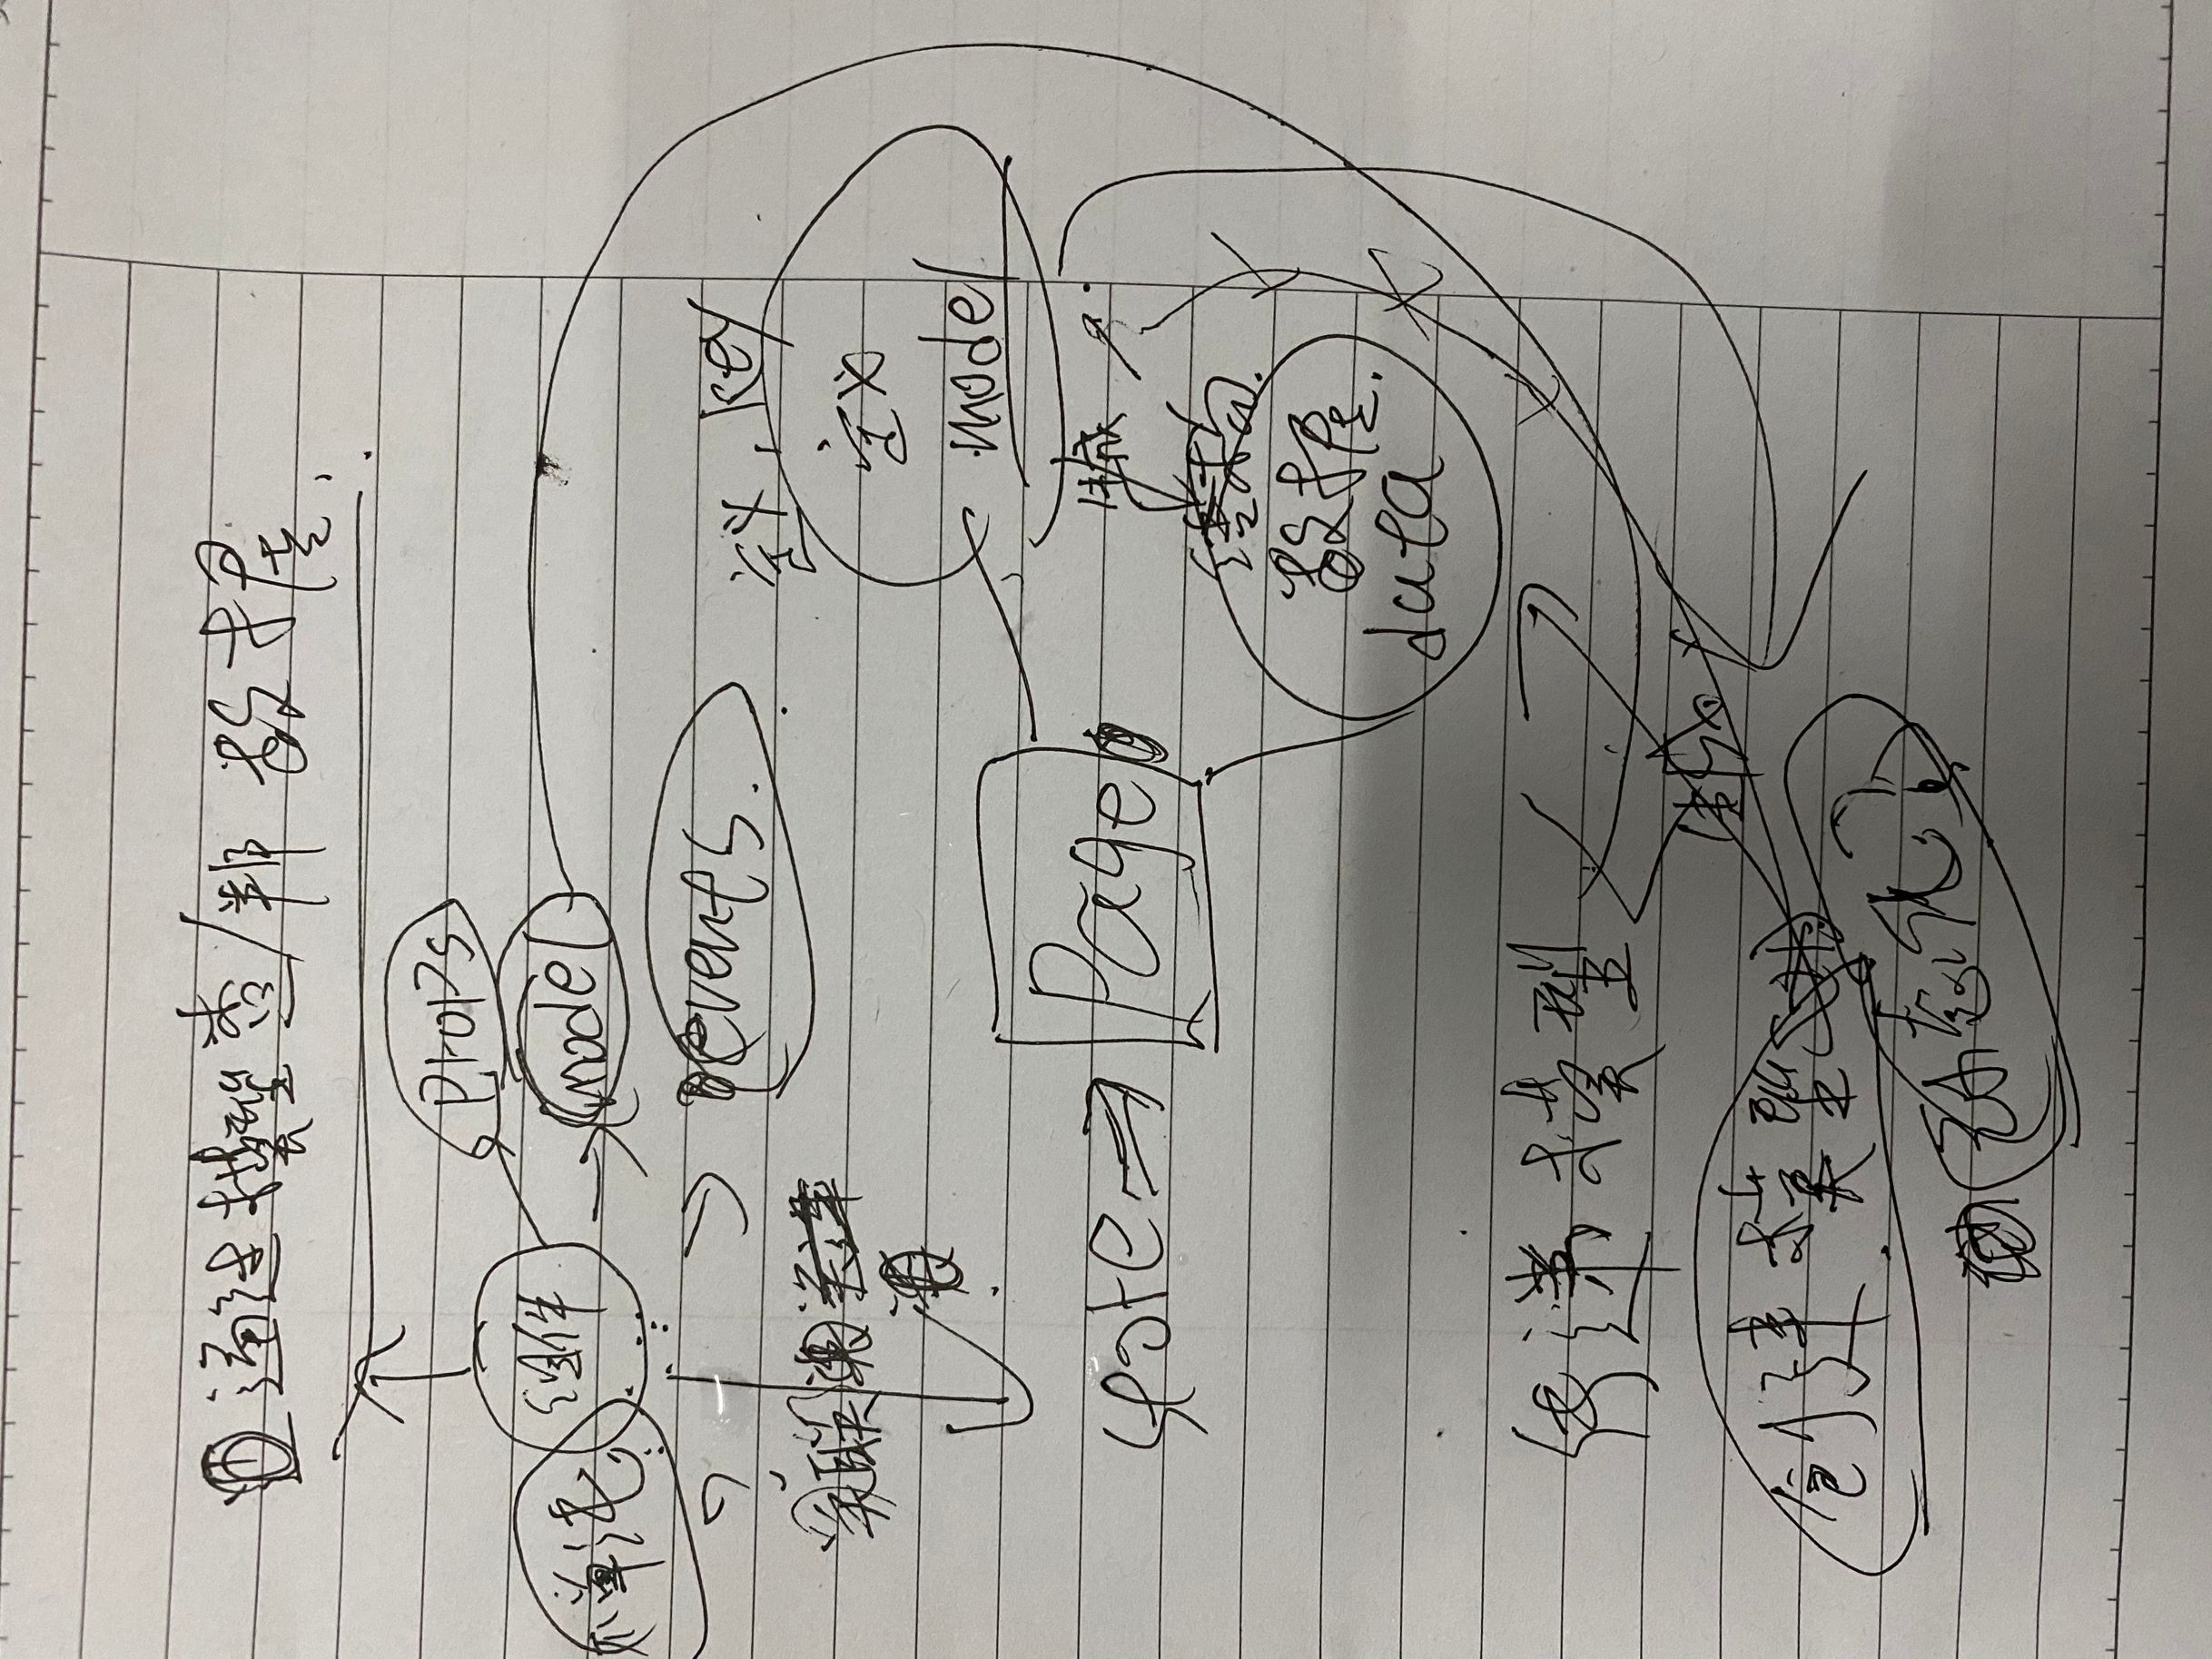 通过模型查/ 数据.
props
组件
model
events.
定义, key
关联
定义
model
Page
生成
结构.
数据.
data
传递模型
生成
创建模型
动态化